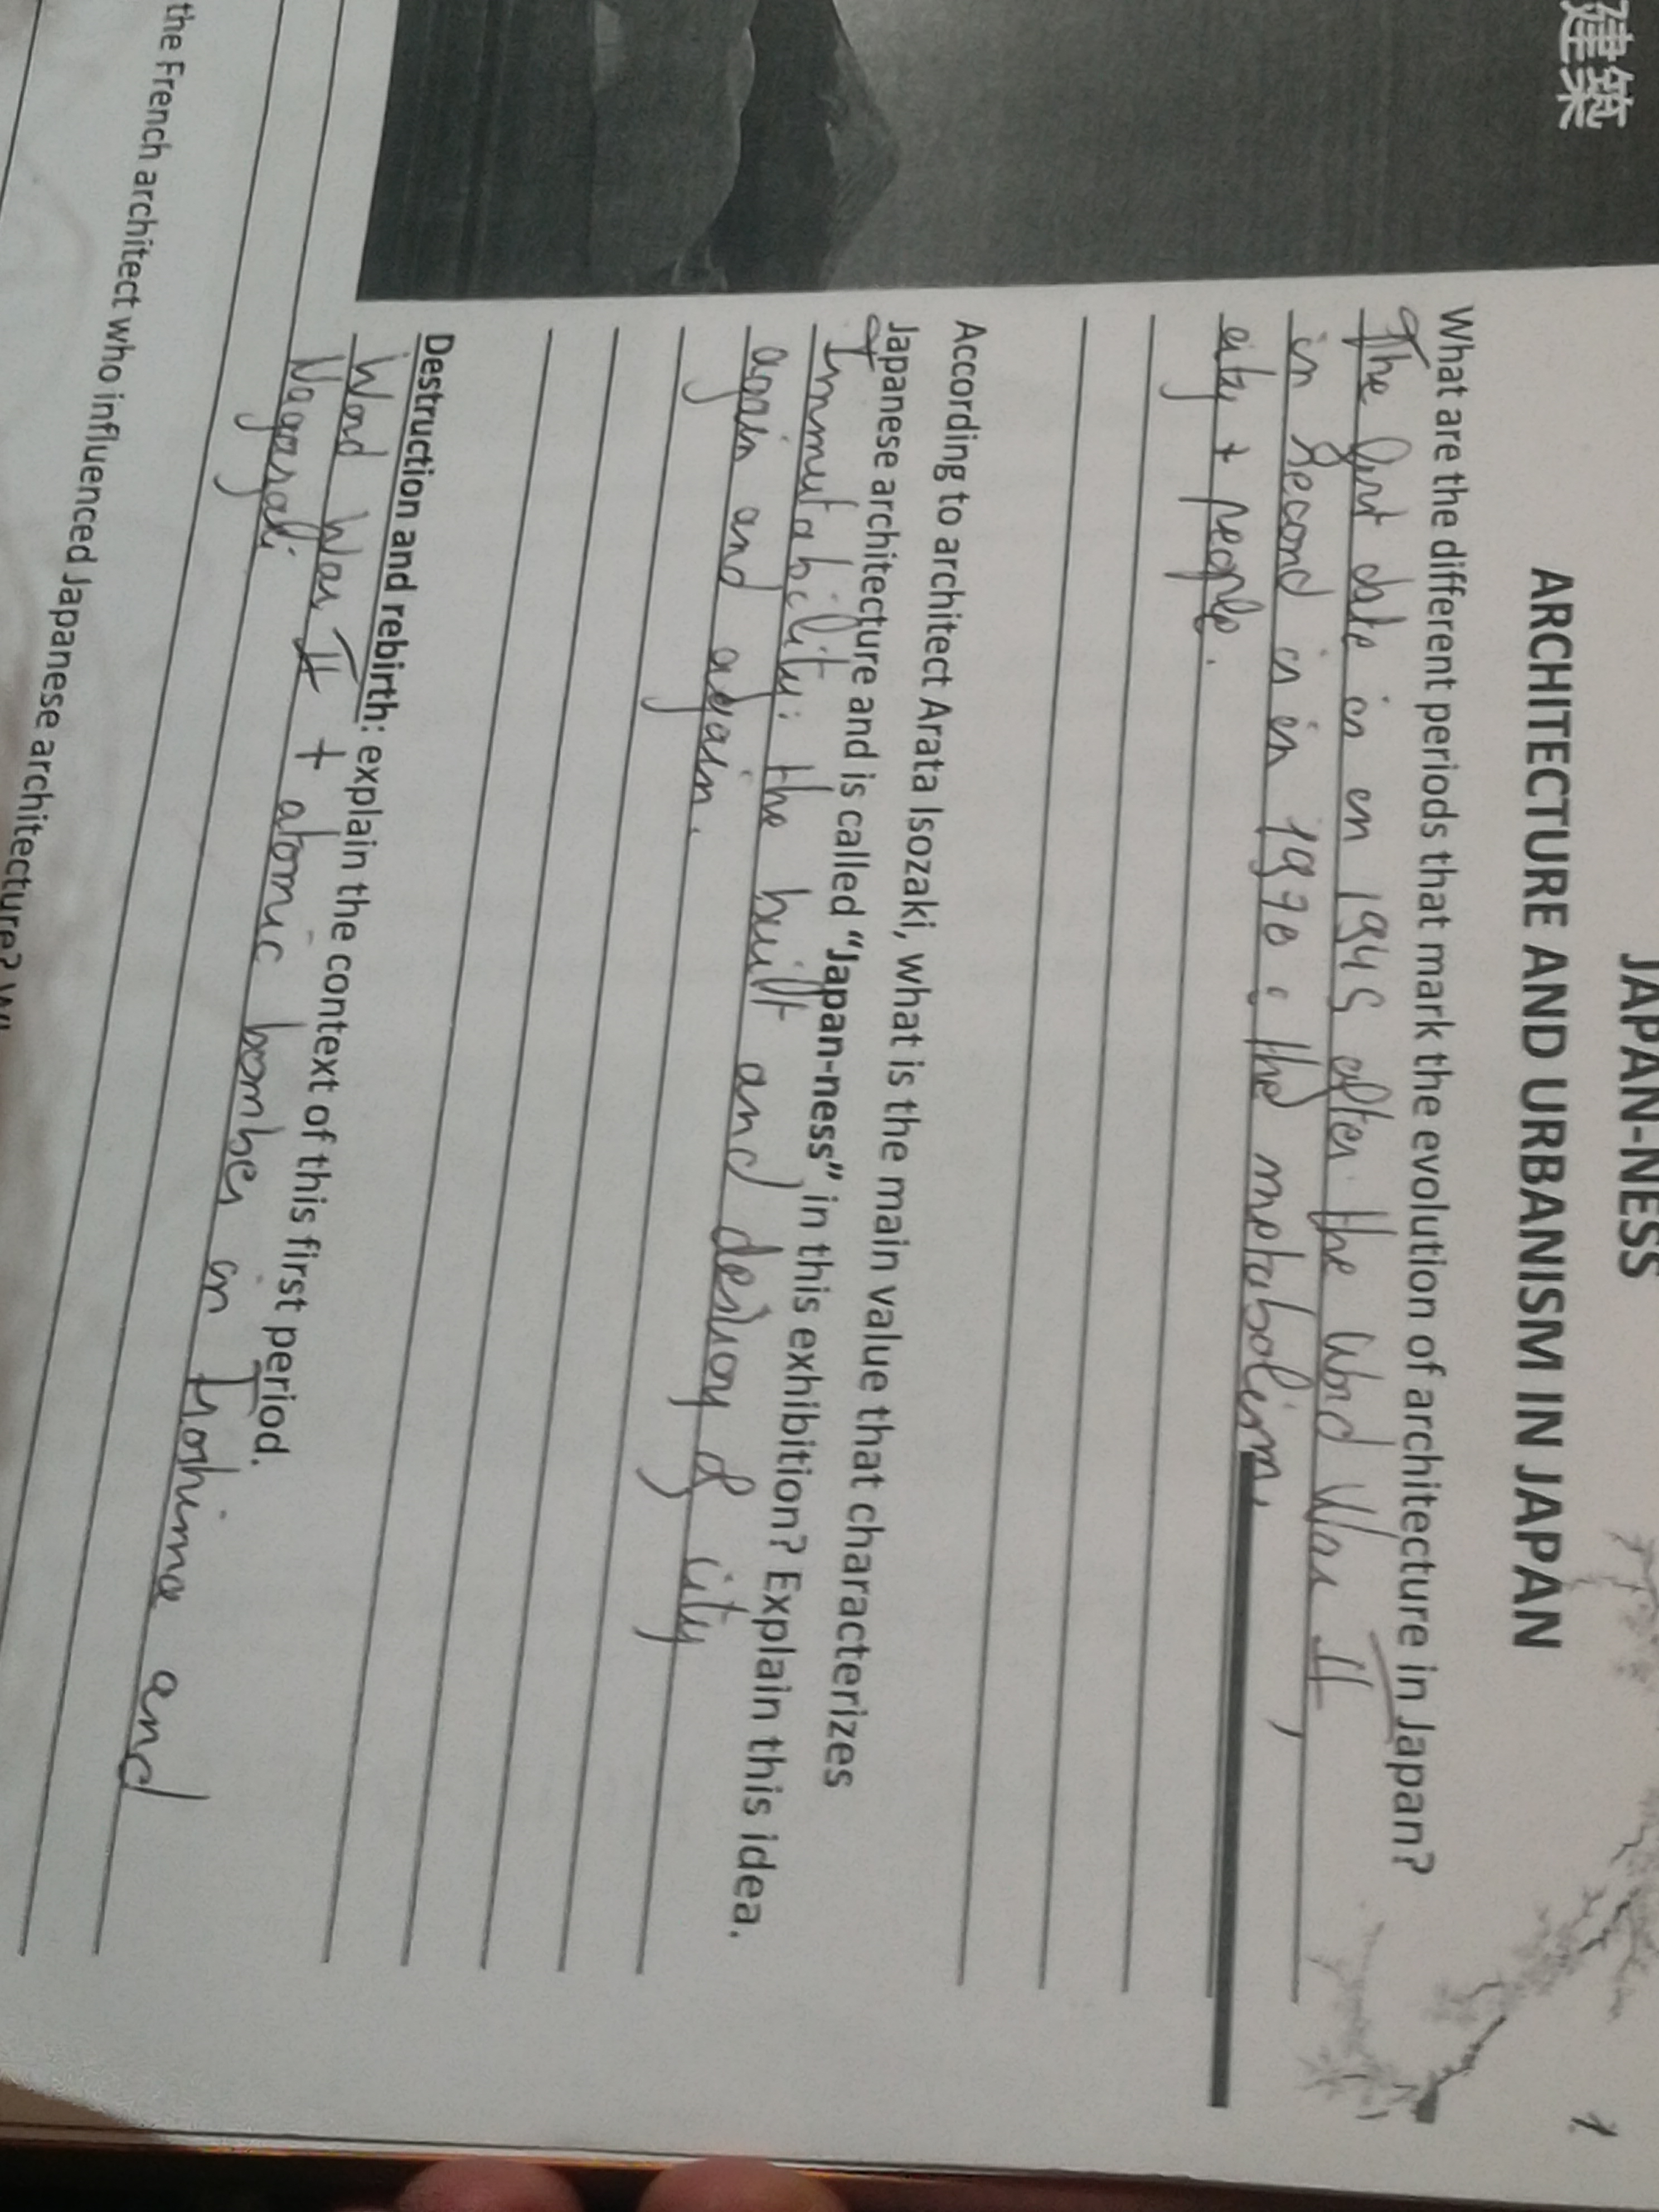 建築
JAPAN-NESS
ARCHITECTURE AND URBANISM IN JAPAN
What are the different periods that mark the evolution of architecture in Japan?
The first date is en 1945 after the Word War II,
in second is in 1970: the metabolism,
city + people.
According to architect Arata Isozaki, what is the main value that characterizes
Japanese architecture and is called "Japan-ness" in this exhibition? Explain this idea.
Immutability: the built and destroy of city
again and again.
Destruction and rebirth: explain the context of this first period.
Word War II + atomic bomber on Hoshima and
Nagasaki
the French architect who influenced Japanese architecture?